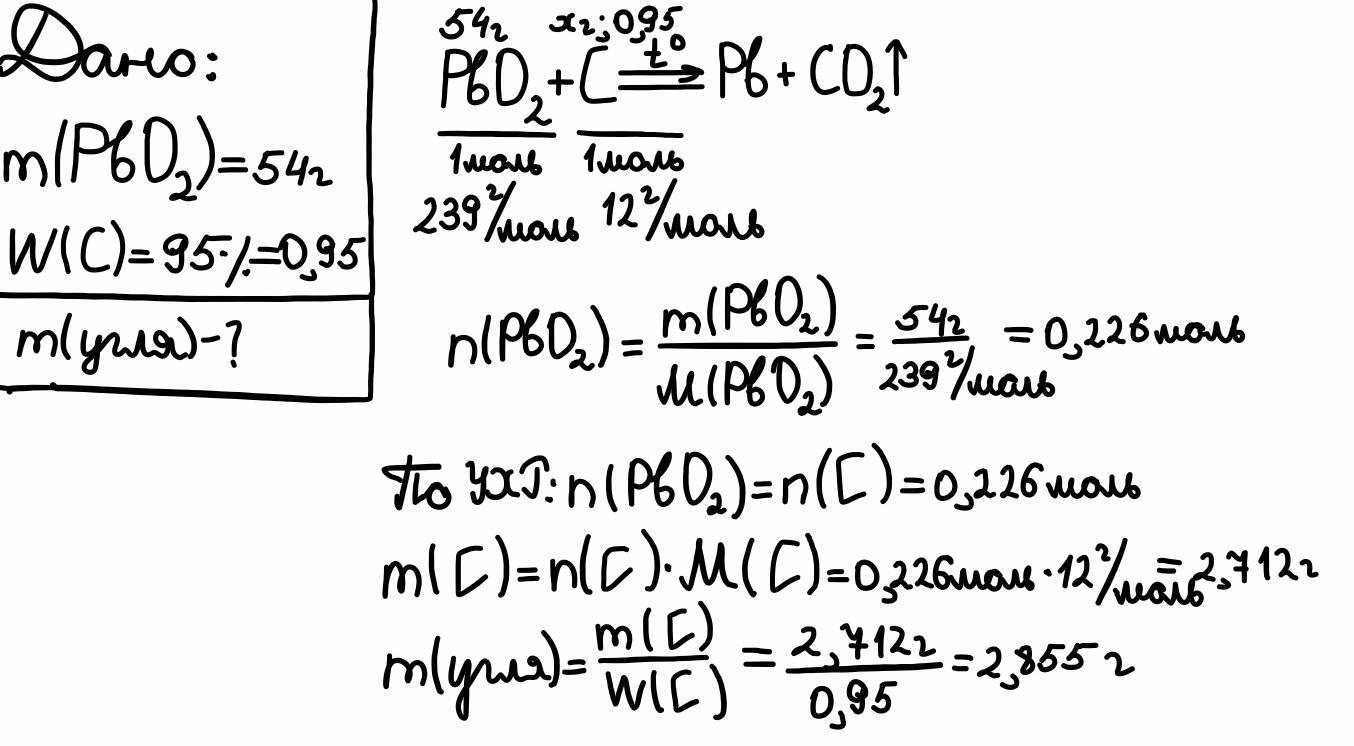 Дано:
m(PbO₂)=54г
W(C)=95%=0,95
m(угля)-?
54г xг;0,95
PbO₂+C t⁰⟹ Pb+CO₂↑
1моль 1моль
239г/моль 12г/моль
n(PbO₂)=m(PbO₂)/M(PbO₂)=54г/239г/моль=0,226моль
По УХР: n(PbO₂)=n(C)=0,226моль
m(C)=n(C)·M(C)=0,226моль·12г/моль=2,712г
m(угля)=m(C)/W(C)=2,712г/0,95=2,855г